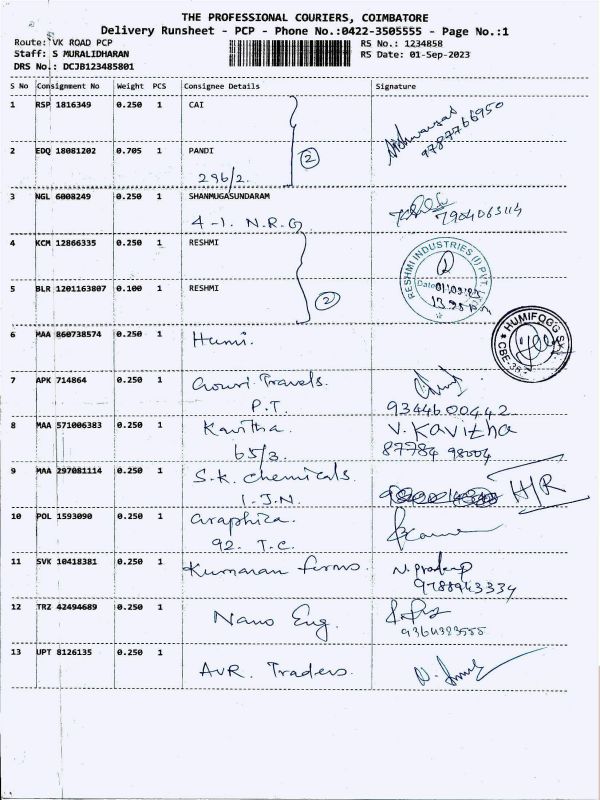 THE PROFESSIONAL COURIERS, COIMBATORE
Delivery Runsheet - PCP - Phone No.:0422-3505555 - Page No.:1
Route: VK ROAD PCP
RS No.: 1234858
Staff: S MURALIDHARAN
RS Date: 01-Sep-2023
DRS No.: DCJB123485801
S No Consignment No Weight PCS Consignee Details Signature
1 RSP 1816349 0.250 1 CAI
9787766950
2 EDQ 18081202 0.705 1 PANDI
2
296/2.
3 NGL 6008249 0.250 1 SHANMUGASUNDARAM
4-1. N.R.G 7904063114
4 KCM 12866335 0.250 1 RESHMI
RESHMI INDUSTRIES (I) PVT.
Date
5 BLR 1201163807 0.100 1 RESHMI
2
HUMIFOGG
CBE-
6 MAA 860738574 0.250 1 Humi.
7 APK 714864 0.250 1 Gouri Travels.
P.T. 9344600442
8 MAA 571006383 0.250 1 Kavitha. V. Kavitha
65/3. 87784 98004
9 MAA 297081114 0.250 1 S.K. Chemicals.
1. J.N. H/R
10 POL 1593090 0.250 1 Graphica.
92. T.C.
11 SVK 10418381 0.250 1 Kumaran firms. N. Pradeep
9788943334
12 TRZ 42494689 0.250 1 Nano Eng.
13 UPT 8126135 0.250 1 AVR. Traders.